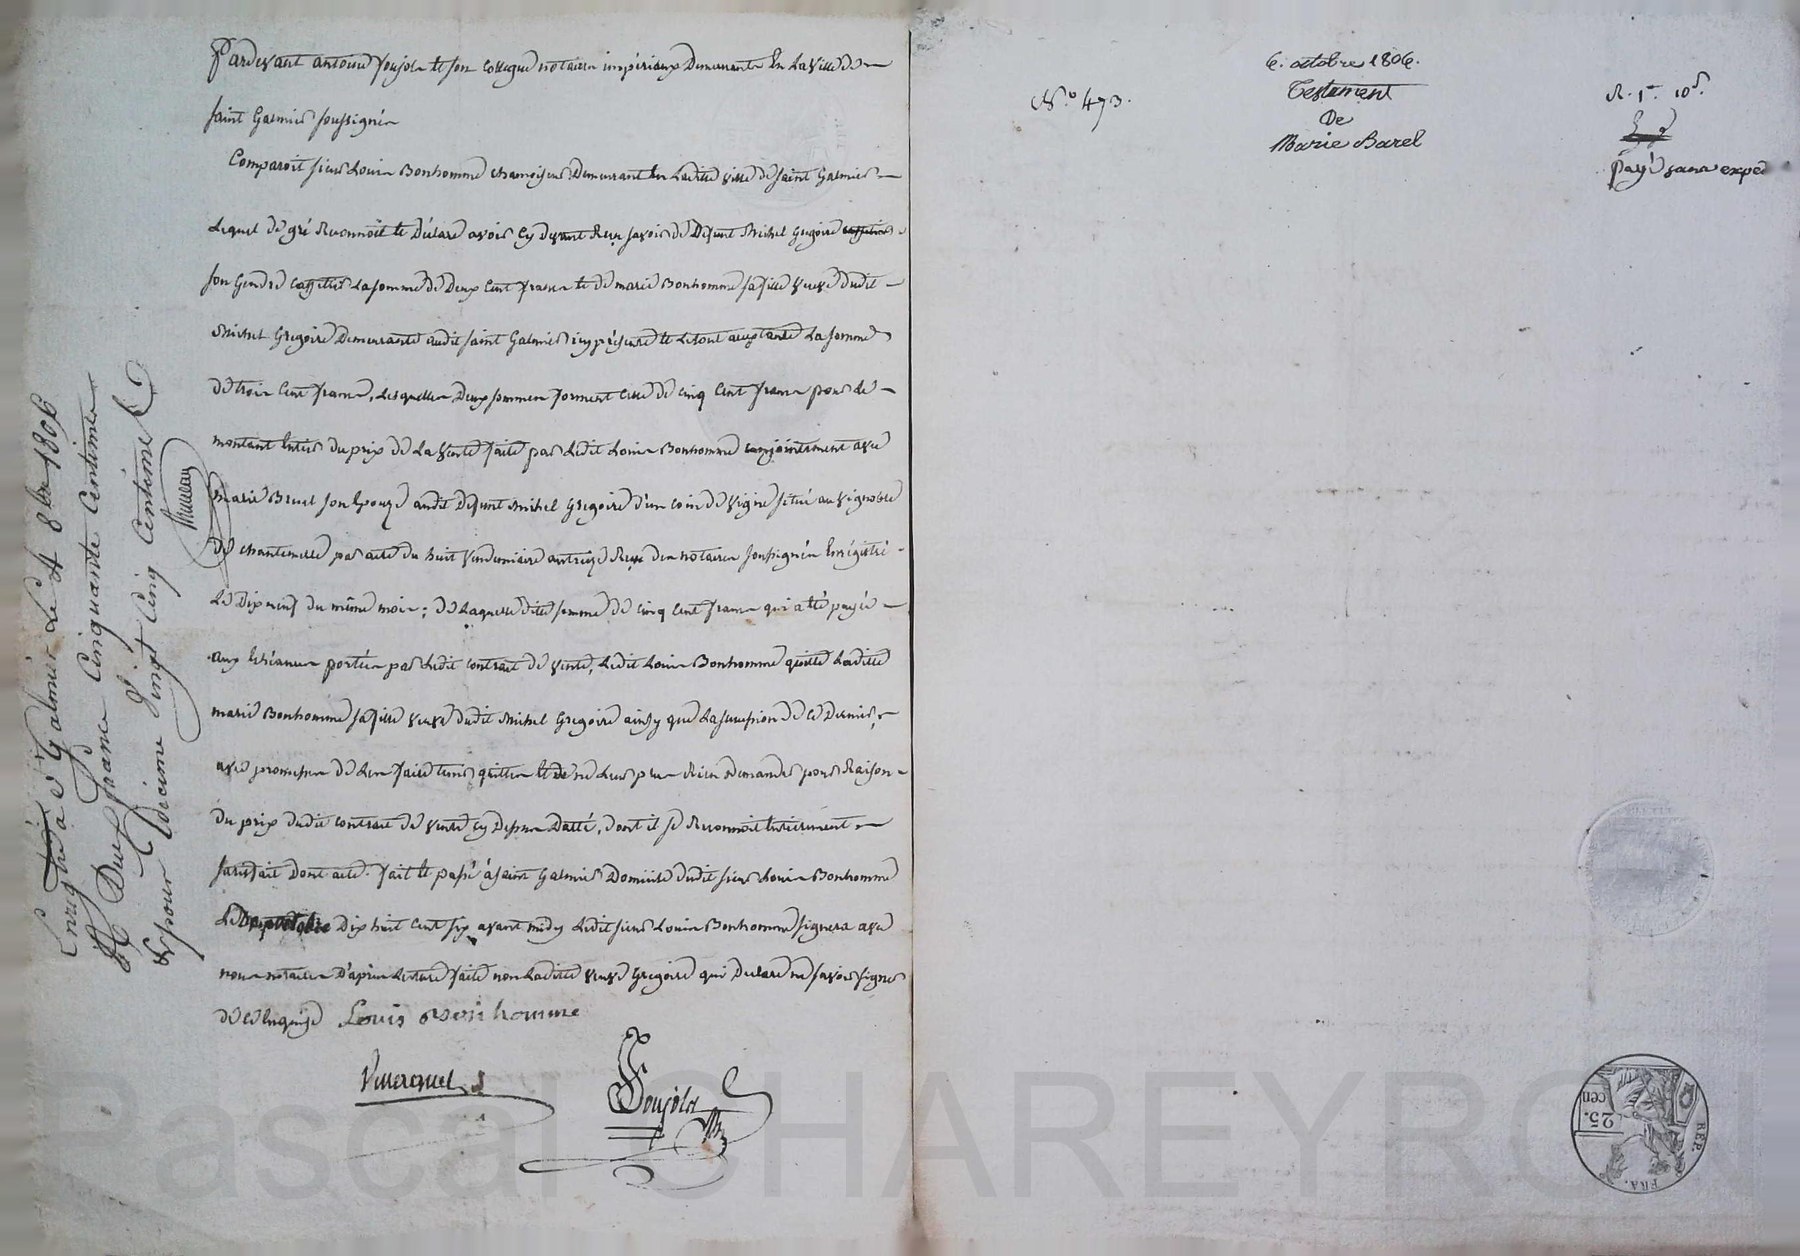 Pardevant antoine Soujols et son collegue notaires impériaux Demeurants En La Ville de
saint Galmier soussignés
Comparoit sieur Louis Bonhomme chamoiseur Demeurant En Ladite ville de saint Galmier
Lequel de gré Reconnoit et Déclare avoir Cy devant Reçu savoir de Défunt Michel Gregoire
son Gendre Caffetier La somme de Deux Cent francs et de marie Bonhomme sa fille veuve dudit
Michel Gregoire Demeurante audit saint Galmier icy présente et Letout acceptante La somme
de trois Cent francs, Lesquelles Deux sommes forment Celle de Cinq Cent francs pour Le
montant Entier du prix de La Vente faite par Ledit Louis Bonhomme conjointement avec
marie Bruel son Epouze audit Défunt Michel Gregoire d'un coin de Vigne situé au vignoble
de chantemerle par acte du huit Vendemiaire an treize Reçu des notaires soussignés Enrégistré
Le Dix neuf du même mois ; de Laquelle dite somme de Cinq Cent francs qui a Eté payée
aux Echéances portées par Ledit contrat de Vente, Ledit Louis Bonhomme quitte Ladite
marie Bonhomme sa fille veuve dudit Michel Gregoire ainsy que La succession de ce Dernier,
avec promesse de Les faire tenir quittes et de ne Leur plus Rien demander pour Raison
du prix dudit contrat de Vente Cy Dessus Datté, dont il se Reconnoit Entierement
satisfait Dont acte. fait et passé à saint Galmier Domicile dudit sieur Louis Bonhomme
Le Dix huit Cent six avant midy Ledit sieur Louis Bonhomme signera avec
nous notaires D'après Lecture faite non Ladite veuve Gregoire qui Declare ne savoir signer
de ce Enquise Louis Bonhomme
Soujols
Enregtré a St Galmier Le 4 8bre 1806
Deux francs Cinquante Centimes
& pour Décime Vingt Cinq Centimes
N.o 473.
6. octobre 1806.
Testament
De
Marie Barel
R. 1f. 10d.
payé sans expé
25.
cen
REP.
FRA.
Pascal CHAREYRON